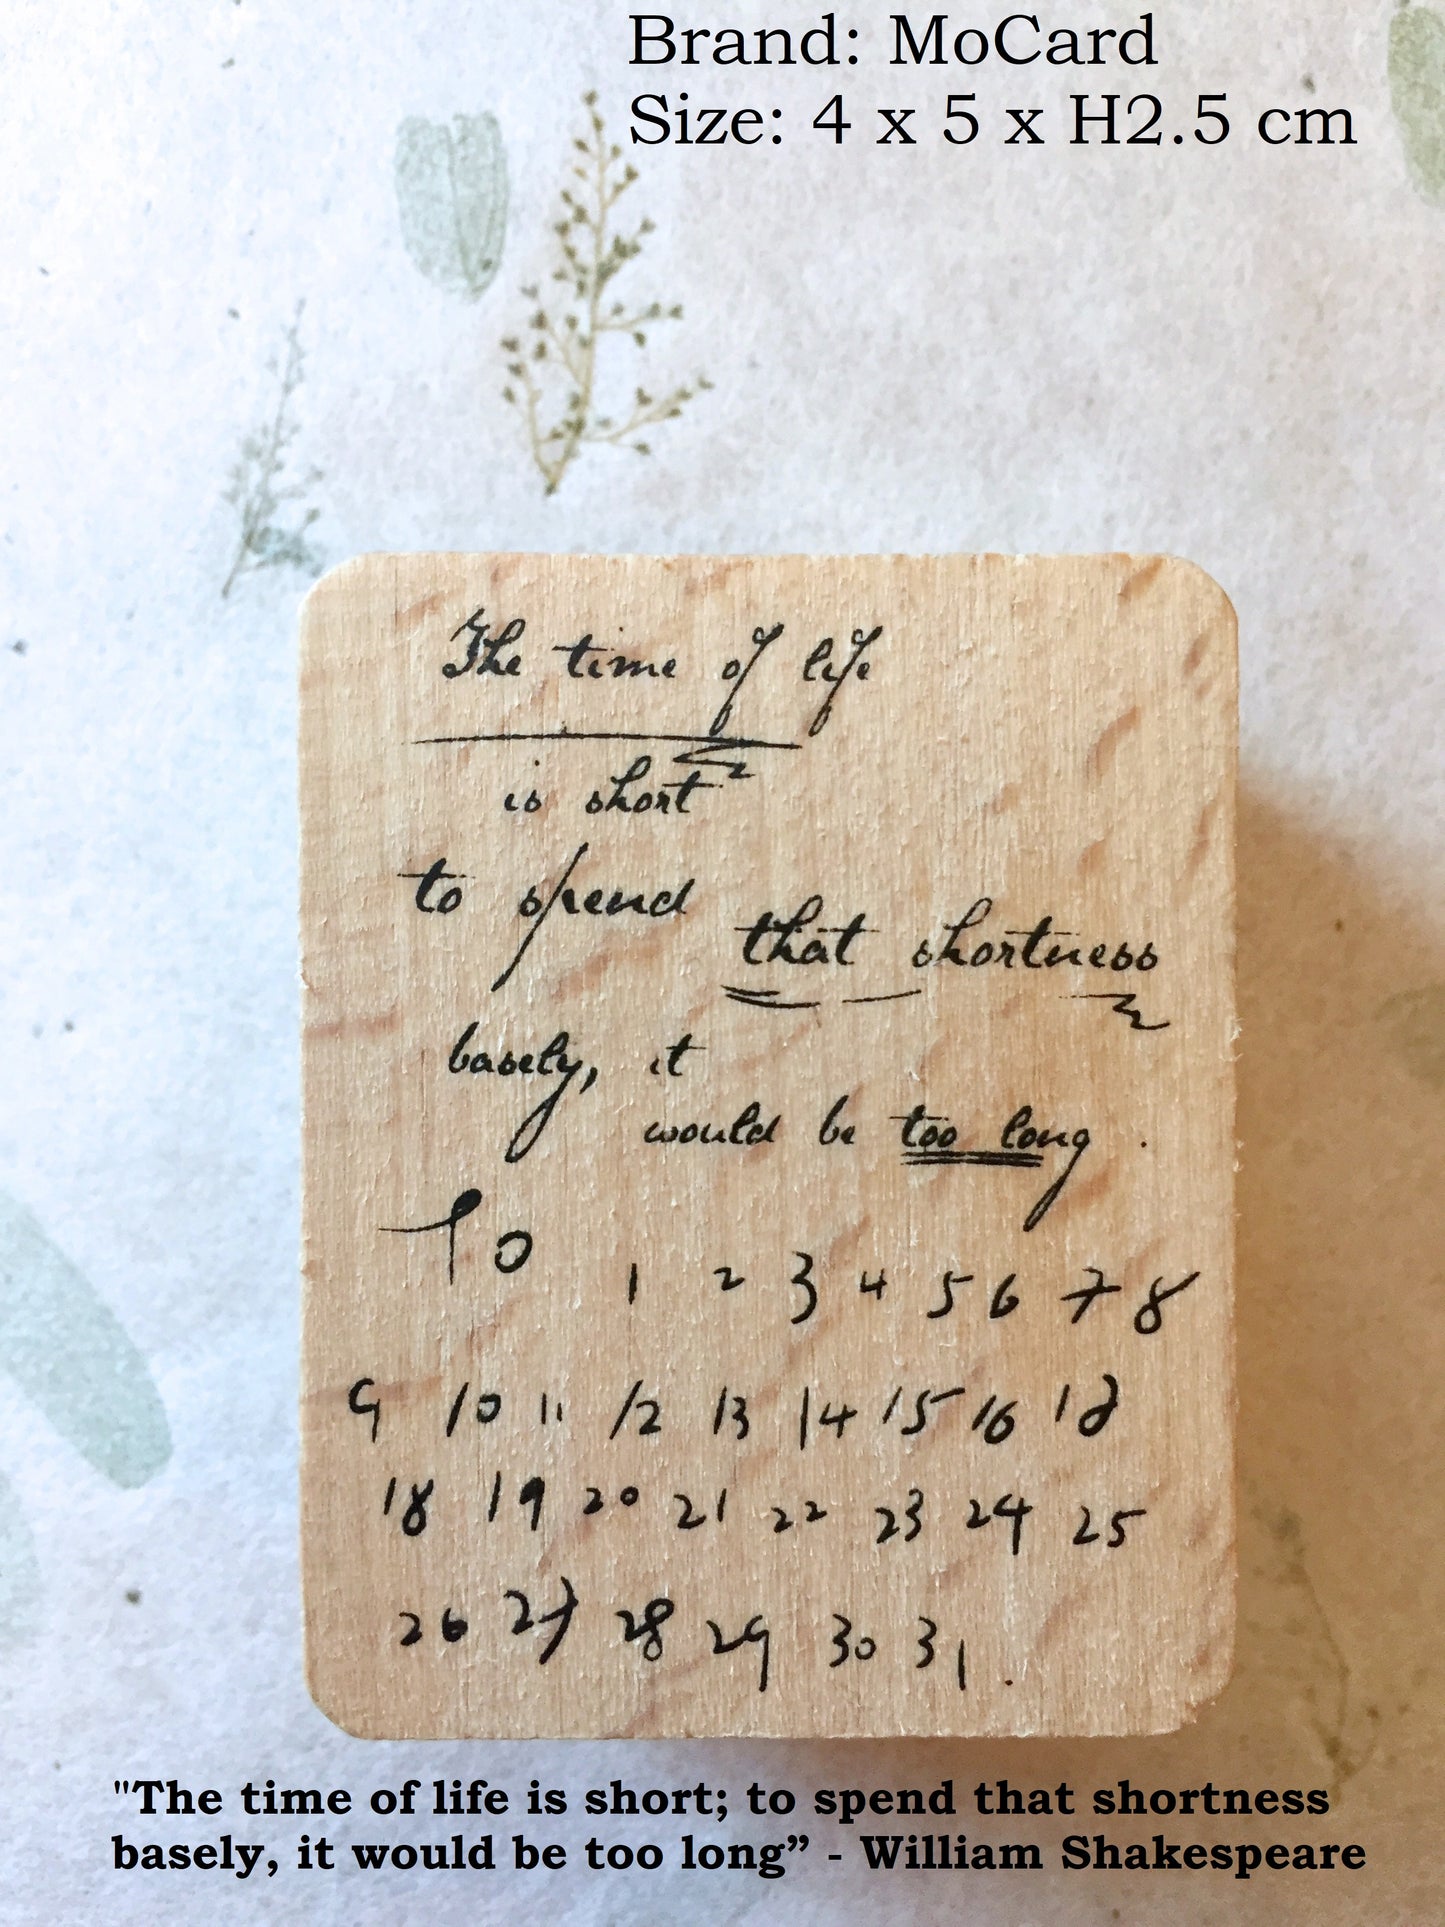 Brand: MoCard
Size: 4 x 5 x H2.5 cm
The time of life
is short
to spend that shortness
basely, it
would be too long .
To
1 2 3 4 5 6 7 8
9 10 11 12 13 14 15 16 18
18 19 20 21 22 23 24 25
26 27 28 29 30 31 .
"The time of life is short; to spend that shortness
basely, it would be too long” - William Shakespeare